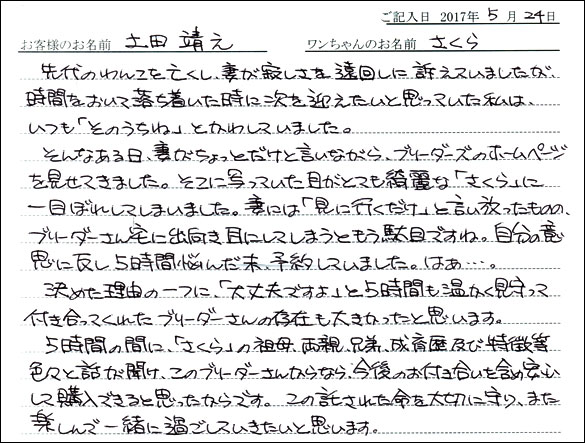 ご記入日 2017年 5月 24日
お客様のお名前 土田 靖え ワンちゃんのお名前 さくら
先代のわんこを亡くし、妻が寂しさを遠回しに訴えていましたが、
時間をおいて落ち着いた時に次を迎えたいと思っていた私は、
いつも「そのうちね」とかわしていました。
そんなある日、妻がちょっとだけと言いながら、ブリーダーズのホームページ
を見せてきました。そこに写っていた目がとても綺麗な「さくら」に
一目ぼれしてしまいました。妻には「見に行くだけ」と言い放ったものの、
ブリーダーさん宅に出向き目にしてしまうともう駄目ですね。自分の意
思に反し5時間悩んだ末、予約していました。はぁ…。
決めた理由の一つに、「大丈夫ですよ」と5時間も温かく見守って
付き合ってくれたブリーダーさんの存在も大きかったと思います。
5時間の間に、「さくら」の祖母、両親、兄弟、成育歴及び特徴等
色々と話が聞け、このブリーダーさんならなら、今後のお付き合いを含め安心
して購入できると思ったからです。この託された命を大切に守り、また
楽しんで一緒に過ごしていきたいと思います。